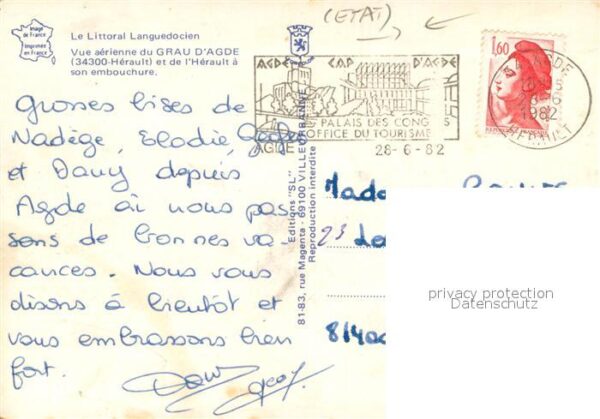 Image de France
Imprimée en France
Le Littoral Languedocien
Vue aérienne du GRAU D'AGDE
(34300-Hérault) et de l'Hérault à
son embouchure.
Grosses bises de
Nadège, Elodie,
et Dany depuis
Agde où nous pas
sons de bonnes va
cances. Nous vous
disons à bientôt et
vous embrassons bien
fort.
Dany
Editions "SL"
81-83, rue Magenta - 69100 VILLEURBANNE
Reproduction interdite
(ETAT)
AGDE CAP D'AGDE
PALAIS DES CONG S
OFFICE DU TOURISME
AGDE
28-6-82
1,60
AGDE
1982
HERAULT
Mada
23
privacy protection
Datenschutz